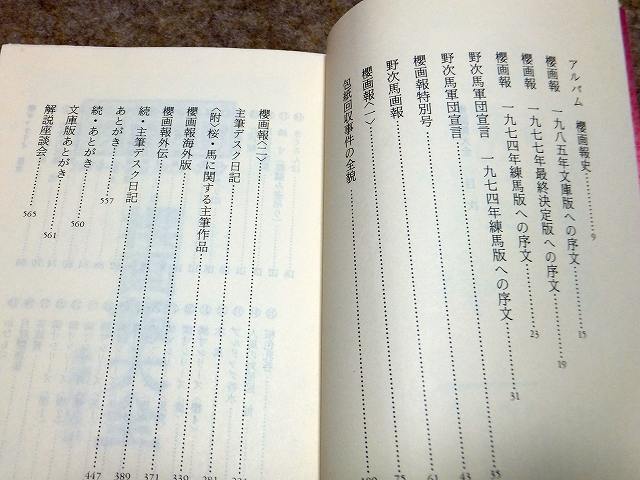 アルバム 櫻画報史……9
櫻画報 一九八五年文庫版への序文……15
櫻画報 一九七七年最終決定版への序文……19
櫻画報 一九七四年練馬版への序文……23
野次馬軍団宣言 一九七四年練馬版への序文……31
野次馬軍団宣言……35
櫻画報特別号……43
野次馬画報……61
櫻画報〈一〉……75
包紙回収事件の全貌……
櫻画報〈二〉……
主筆デスク日記……
〈附〉桜・馬に関する主筆作品……339
櫻画報海外版……371
櫻画報外伝……389
続・主筆デスク日記……447
あとがき……557
続・あとがき……560
文庫版あとがき……561
解説座談会……565